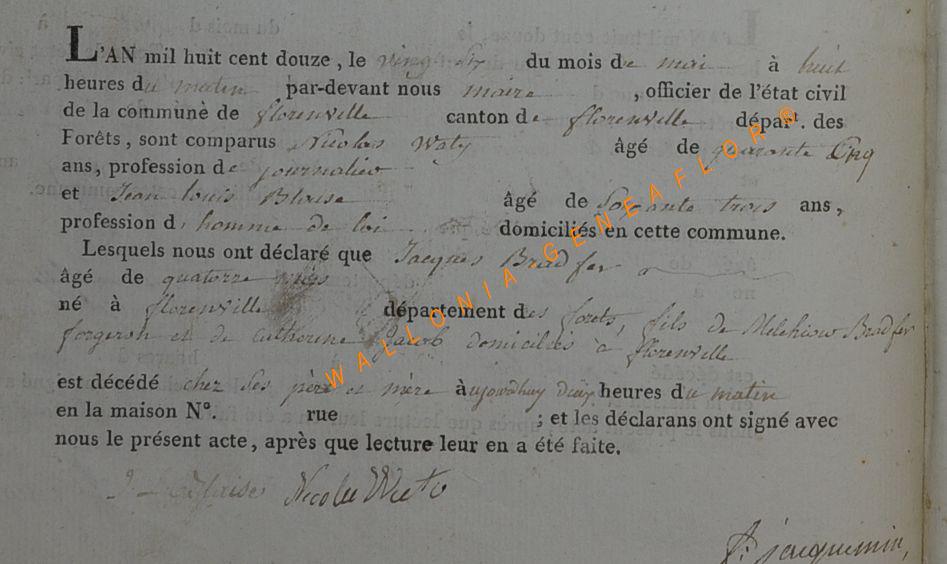 L'AN mil huit cent douze, le vingt Six du mois de mai à huit
heures du matin par-devant nous maire , officier de l'état civil
de la commune de florenville canton de florenville départ. des
Forêts, sont comparus Nicolas Waty âgé de quarante Cinq
ans, profession de journalier
et Jean louis Blaise âgé de Soixante trois ans,
profession d' homme de loi domiciliés en cette commune.
Lesquels nous ont déclaré que Jacques Bradfer
âgé de quatorze mois
né à florenville département des forets, fils de Melchiour Bradfer
forgeron et de Catherine Jacob domiciliés à florenville
est décédé chez Ses père et mère àujourdhuy deux heures du matin
en la maison N°. rue ; et les déclarans ont signé avec
nous le présent acte, après que lecture leur en a été faite.
Blaise Nicolas
jacquemin,
WALLONIA GENEAFLOR®